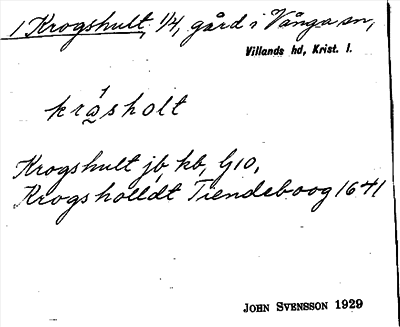 1 Krogshult, 1/4, gård i Vånga sn,
Villands hd, Krist. l.
kråsholt
Krogshult jb, kb, G10,
Krogsholldt Tiendeboog 1641
JOHN SVENSSON 1929